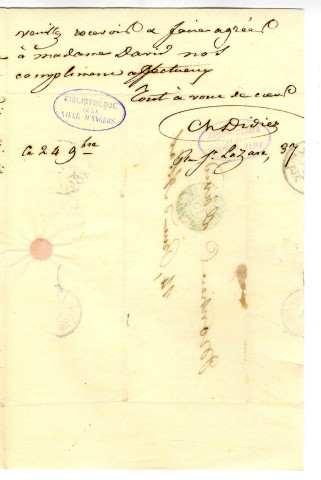 veuillez recevoir et faire agréer
à madame David nos
compliments affectueux
Tout à vous de cœur
Ch Didier
BIBLIOTHÈQUE
DE LA
VILLE D'ANGERS
ce 24 9bre
Rue St Lazare, 37
Monsieur
David